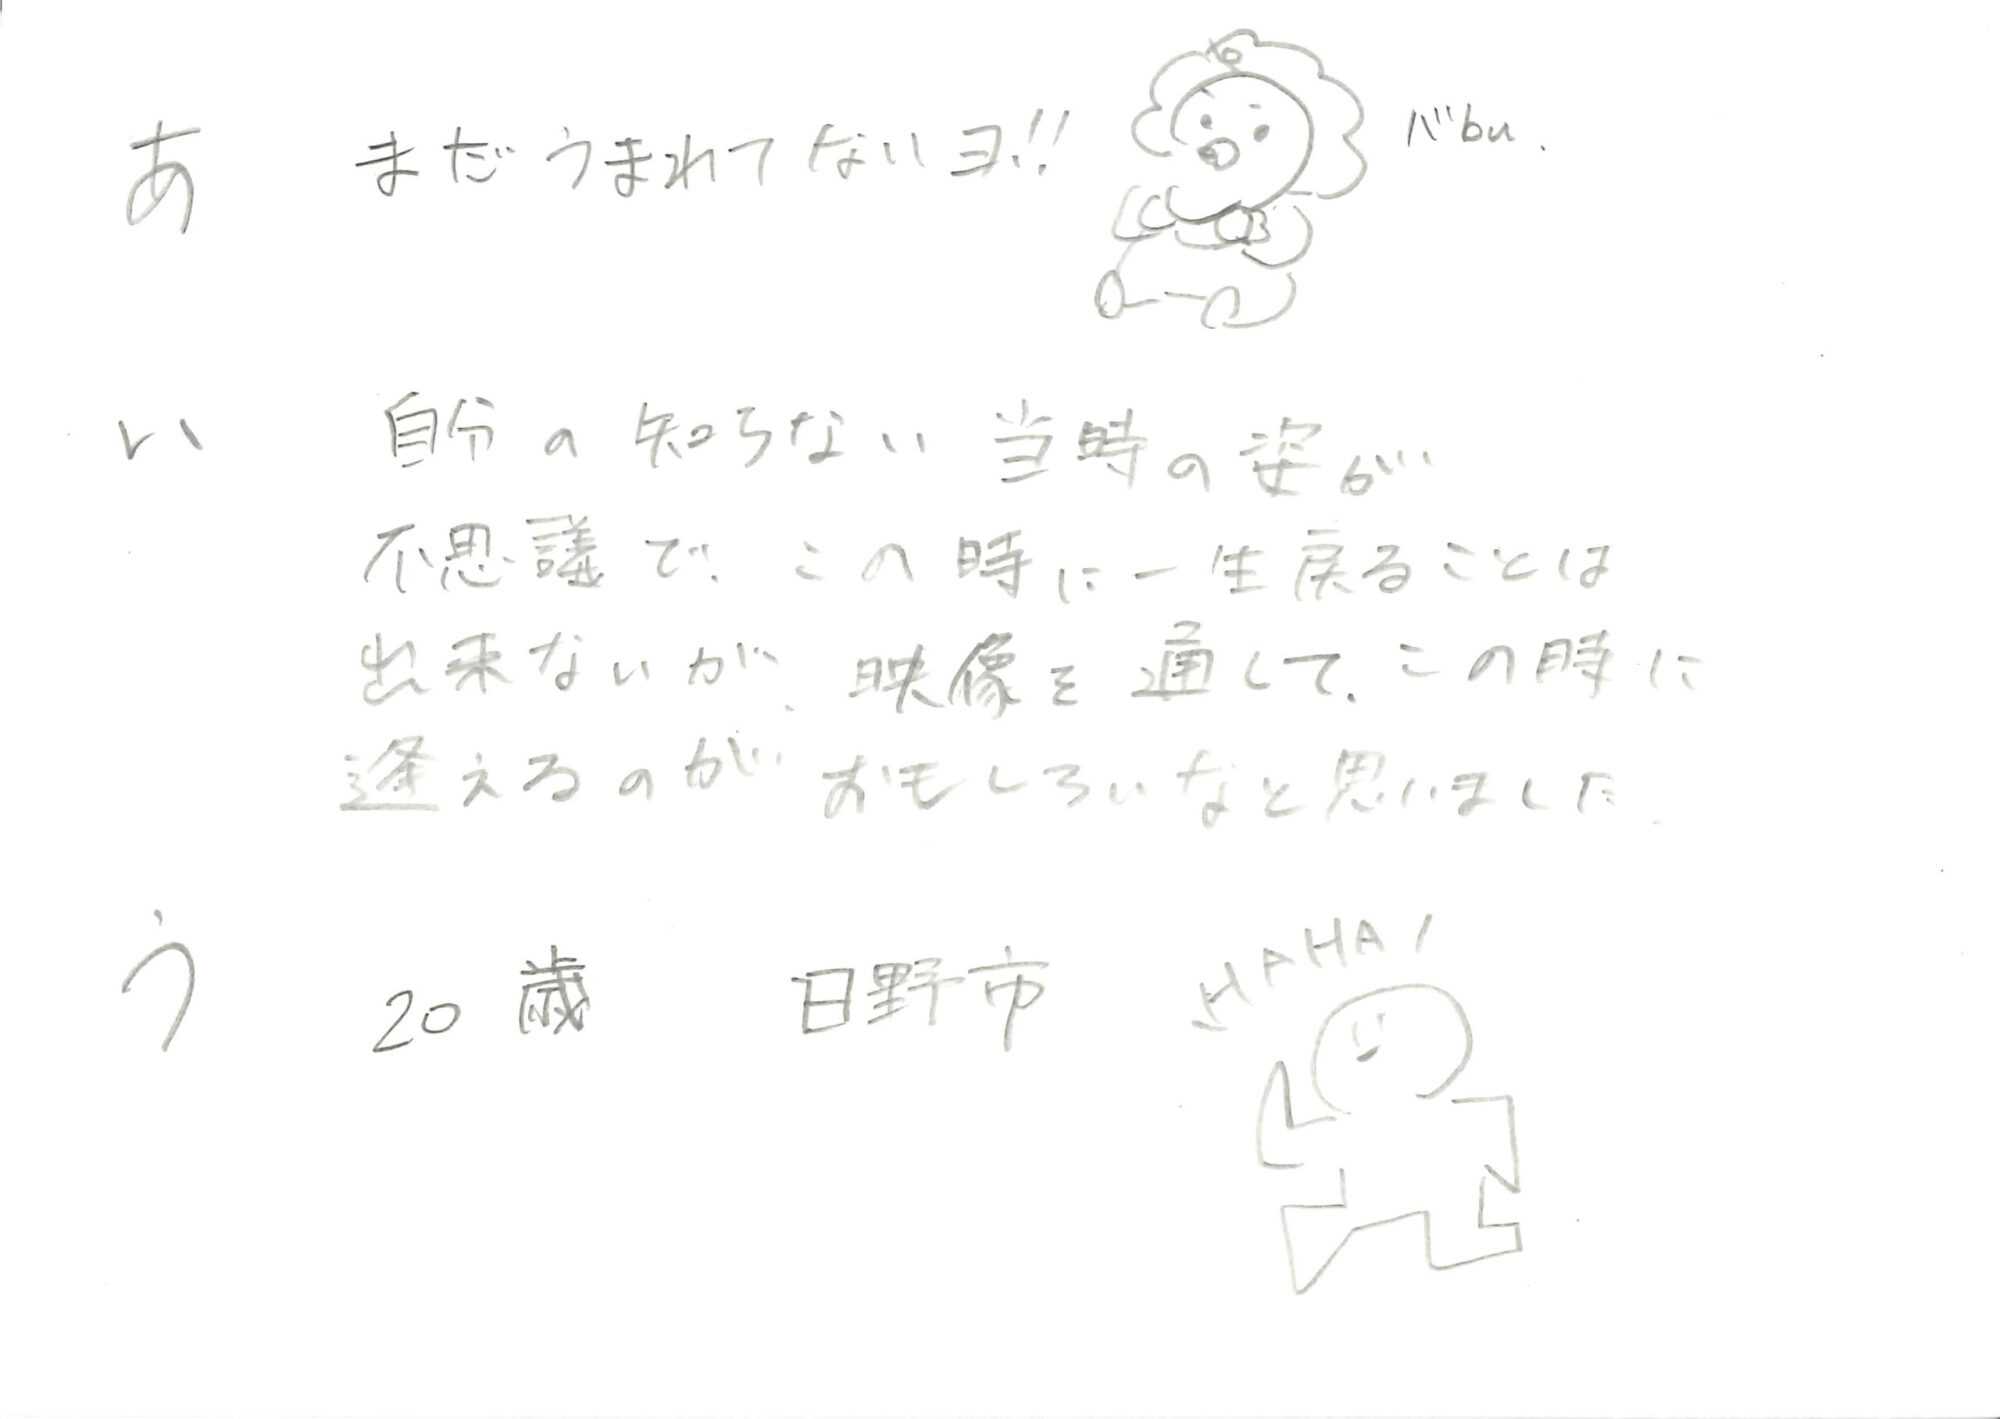 あ まだうまれてないヨ!! バbu.
い 自分の知らない当時の姿が
不思議で、この時に一生戻ることは
出来ないが、映像を通して、この時に
逢えるのがおもしろいなと思いました.
う 20歳 日野市 HAHA!